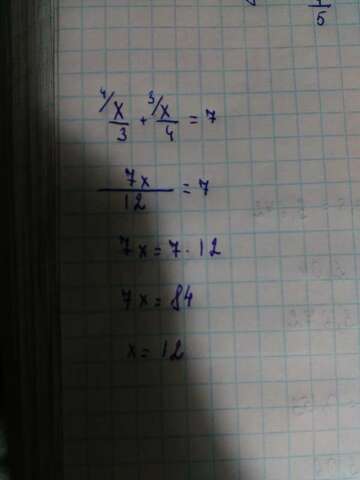 1/5
4/ x/3 + 3/ x/4 = 7
7x/12 = 7
7x = 7 · 12
7x = 84
x = 12